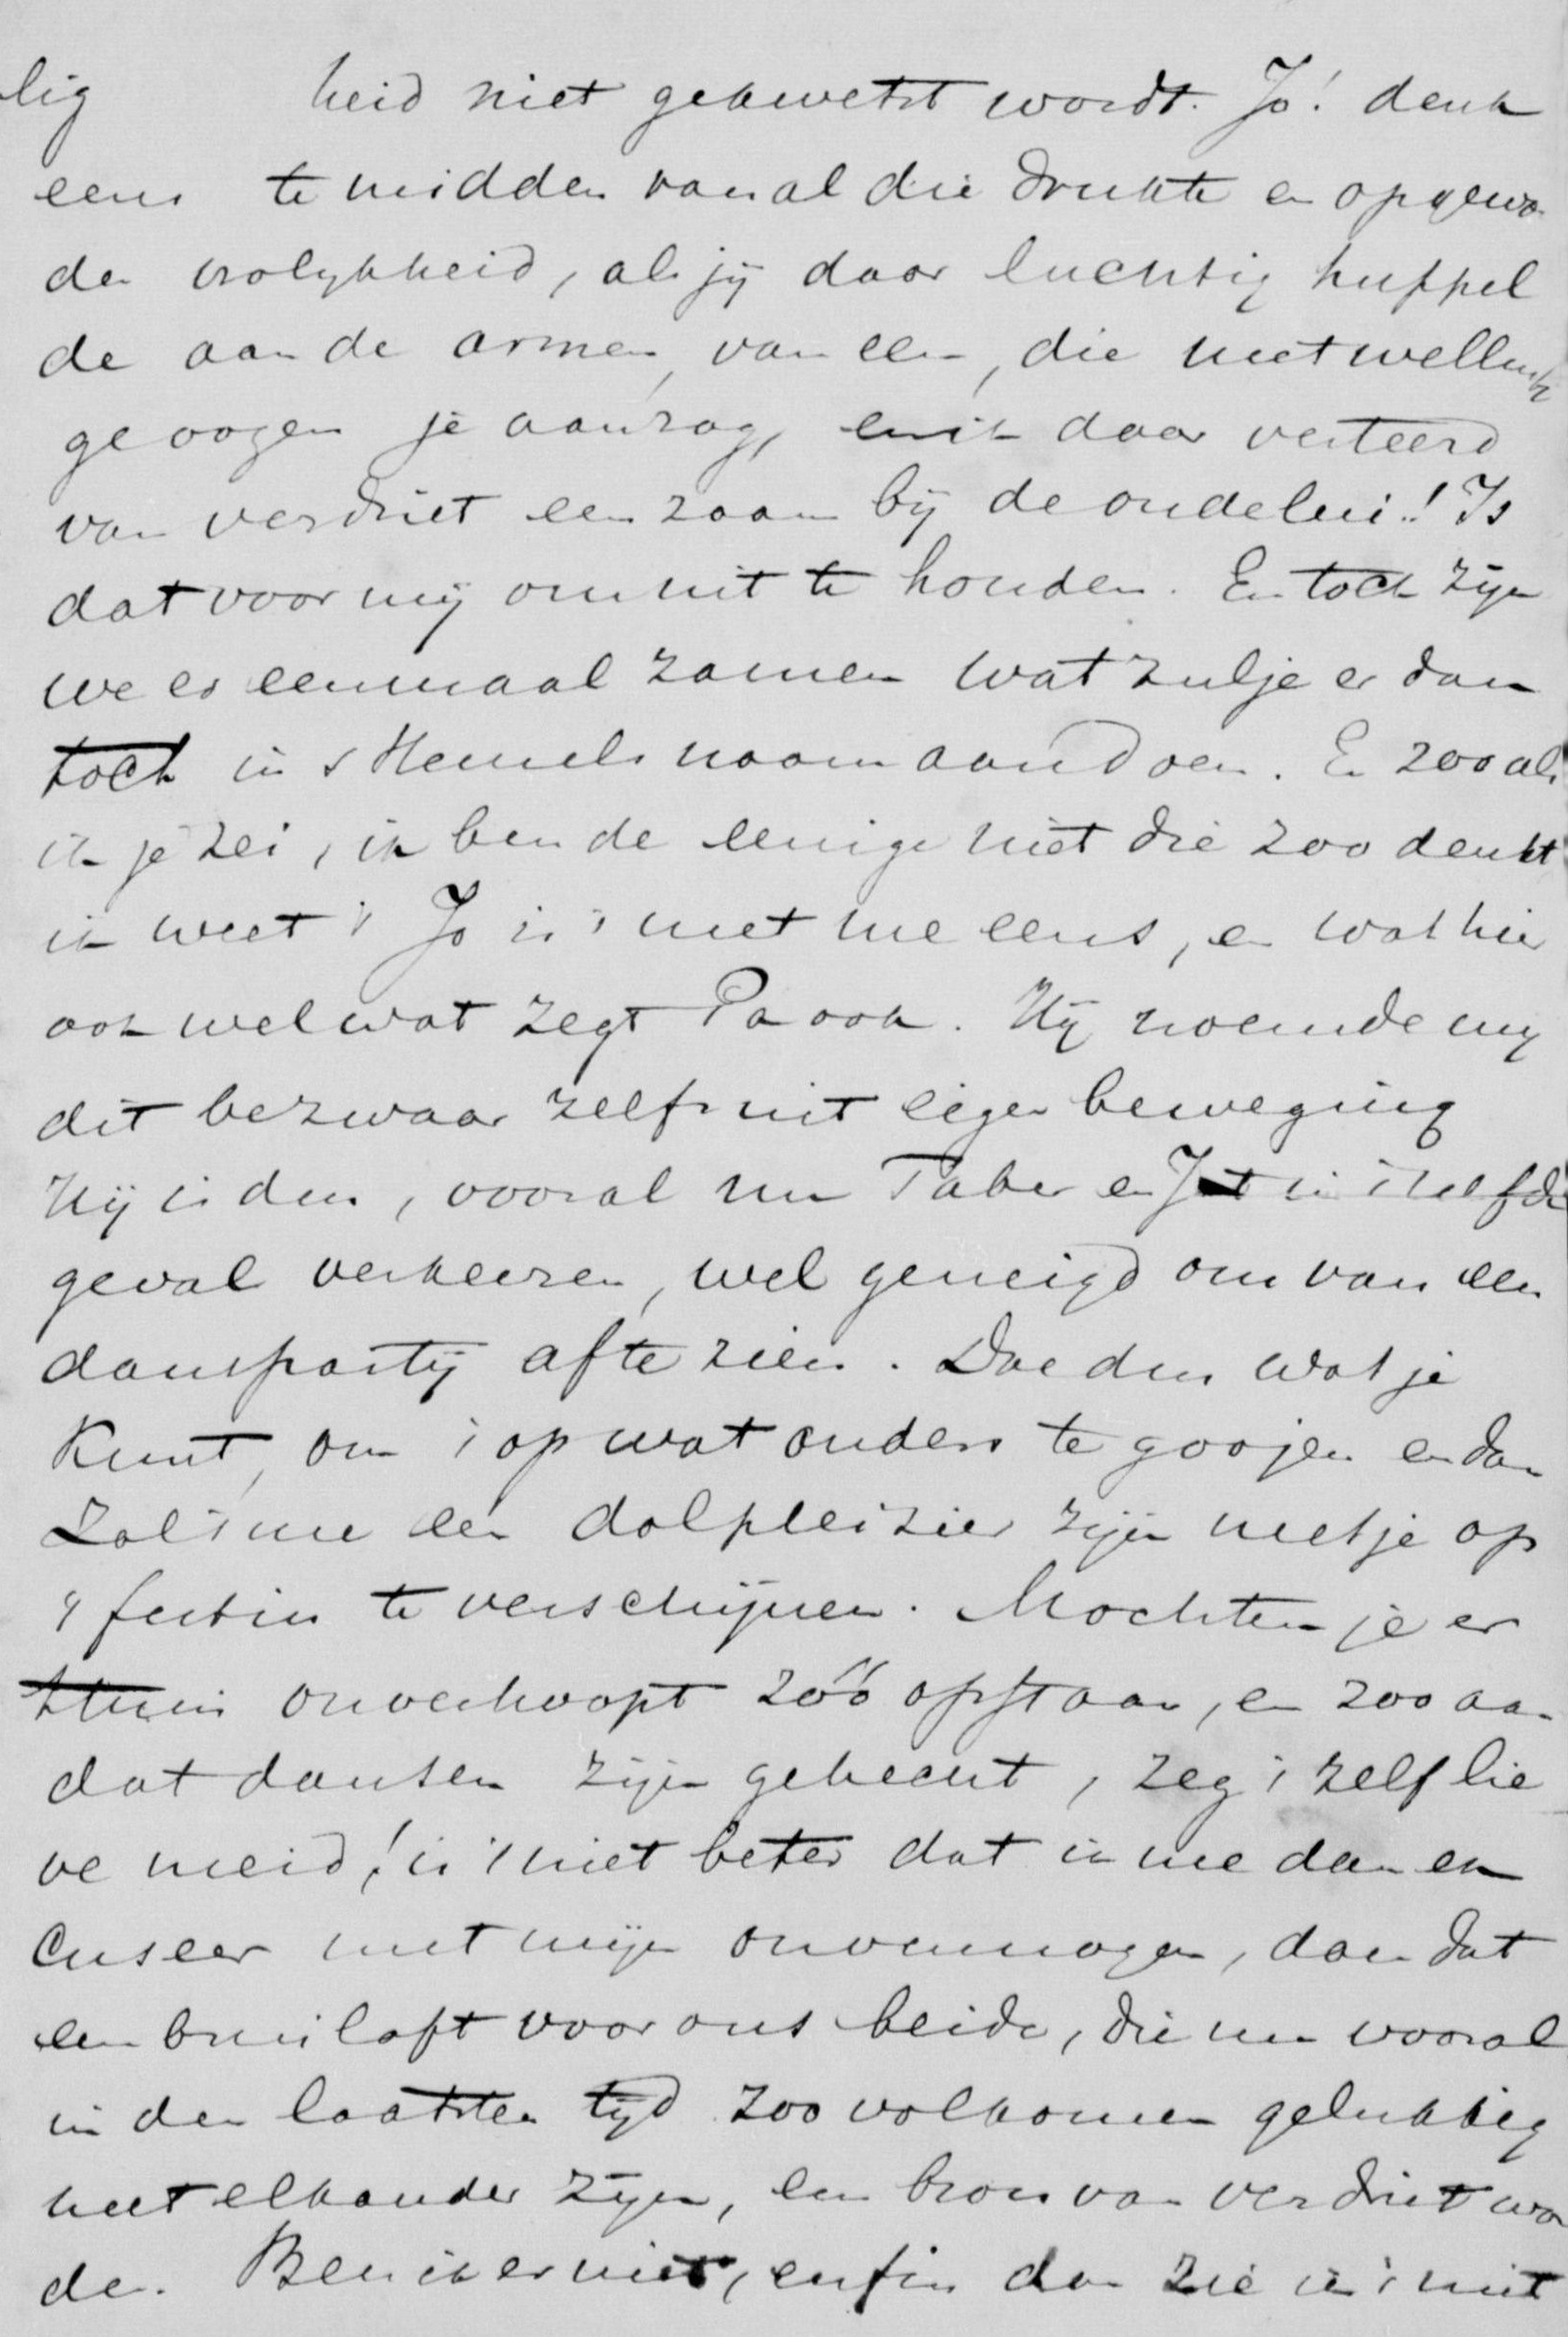 lig heid niet gekwetst wordt. Jo! denk
eens te midden van al die drukte en opgewo
den vrolykheid, als jij daar luchtig huppel
de aan de armen van een, die met wellust
ge oogen je aanzag, en ik daar verteerd
van verdriet eenzaam bij de oudelui.! Is
dat voor mij om uit te houden. En toch zijn
we er eenmaal zamen wat zulje er dan
toch in s Hemels naam aan doen. En zooals
ik je zei, ik ben de eenige niet die zoo denkt
ik weet 't Jo is 't met me eens, en wat hier
ook wel wat zegt Pa ook. Hij noemde my
dit bezwaar zelfs uit eigen beweging
Hij is dus, vooral nu Taber en Jet in 't zelfde
geval verkeeren, wel geneigd om van een
danspartij afte zien. Doe dus wat je
kunt, om 't op wat anders te gooijen en dan
zal 't me een dolpleizier zijn met je op
't festin te verschijnen. Mochten je er
thuis onverhoopt zóó opstaan, en zoo aan
dat dansen zijn gehecht, zeg 't zelf lie
ve meid! is 't niet beter dat ik me dan ex
cuseer met mijn onvermogen, dan dat
een bruiloft voor ons beide, die nu vooral
in den laatsten tijd zoo volkomen gelukkig
met elkander zijn, een bron van verdriet wor
de. Ben ik er niet, enfin dan zie ik 't niet